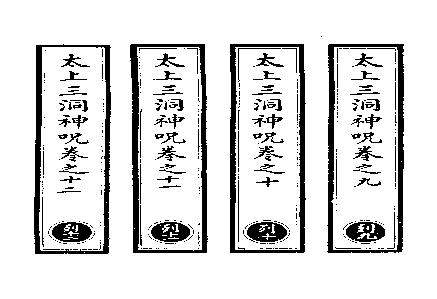 太上三洞神呪卷之九
列九
太上三洞神呪卷之十
列十
太上三洞神呪卷之十一
太上三洞神呪卷之十二